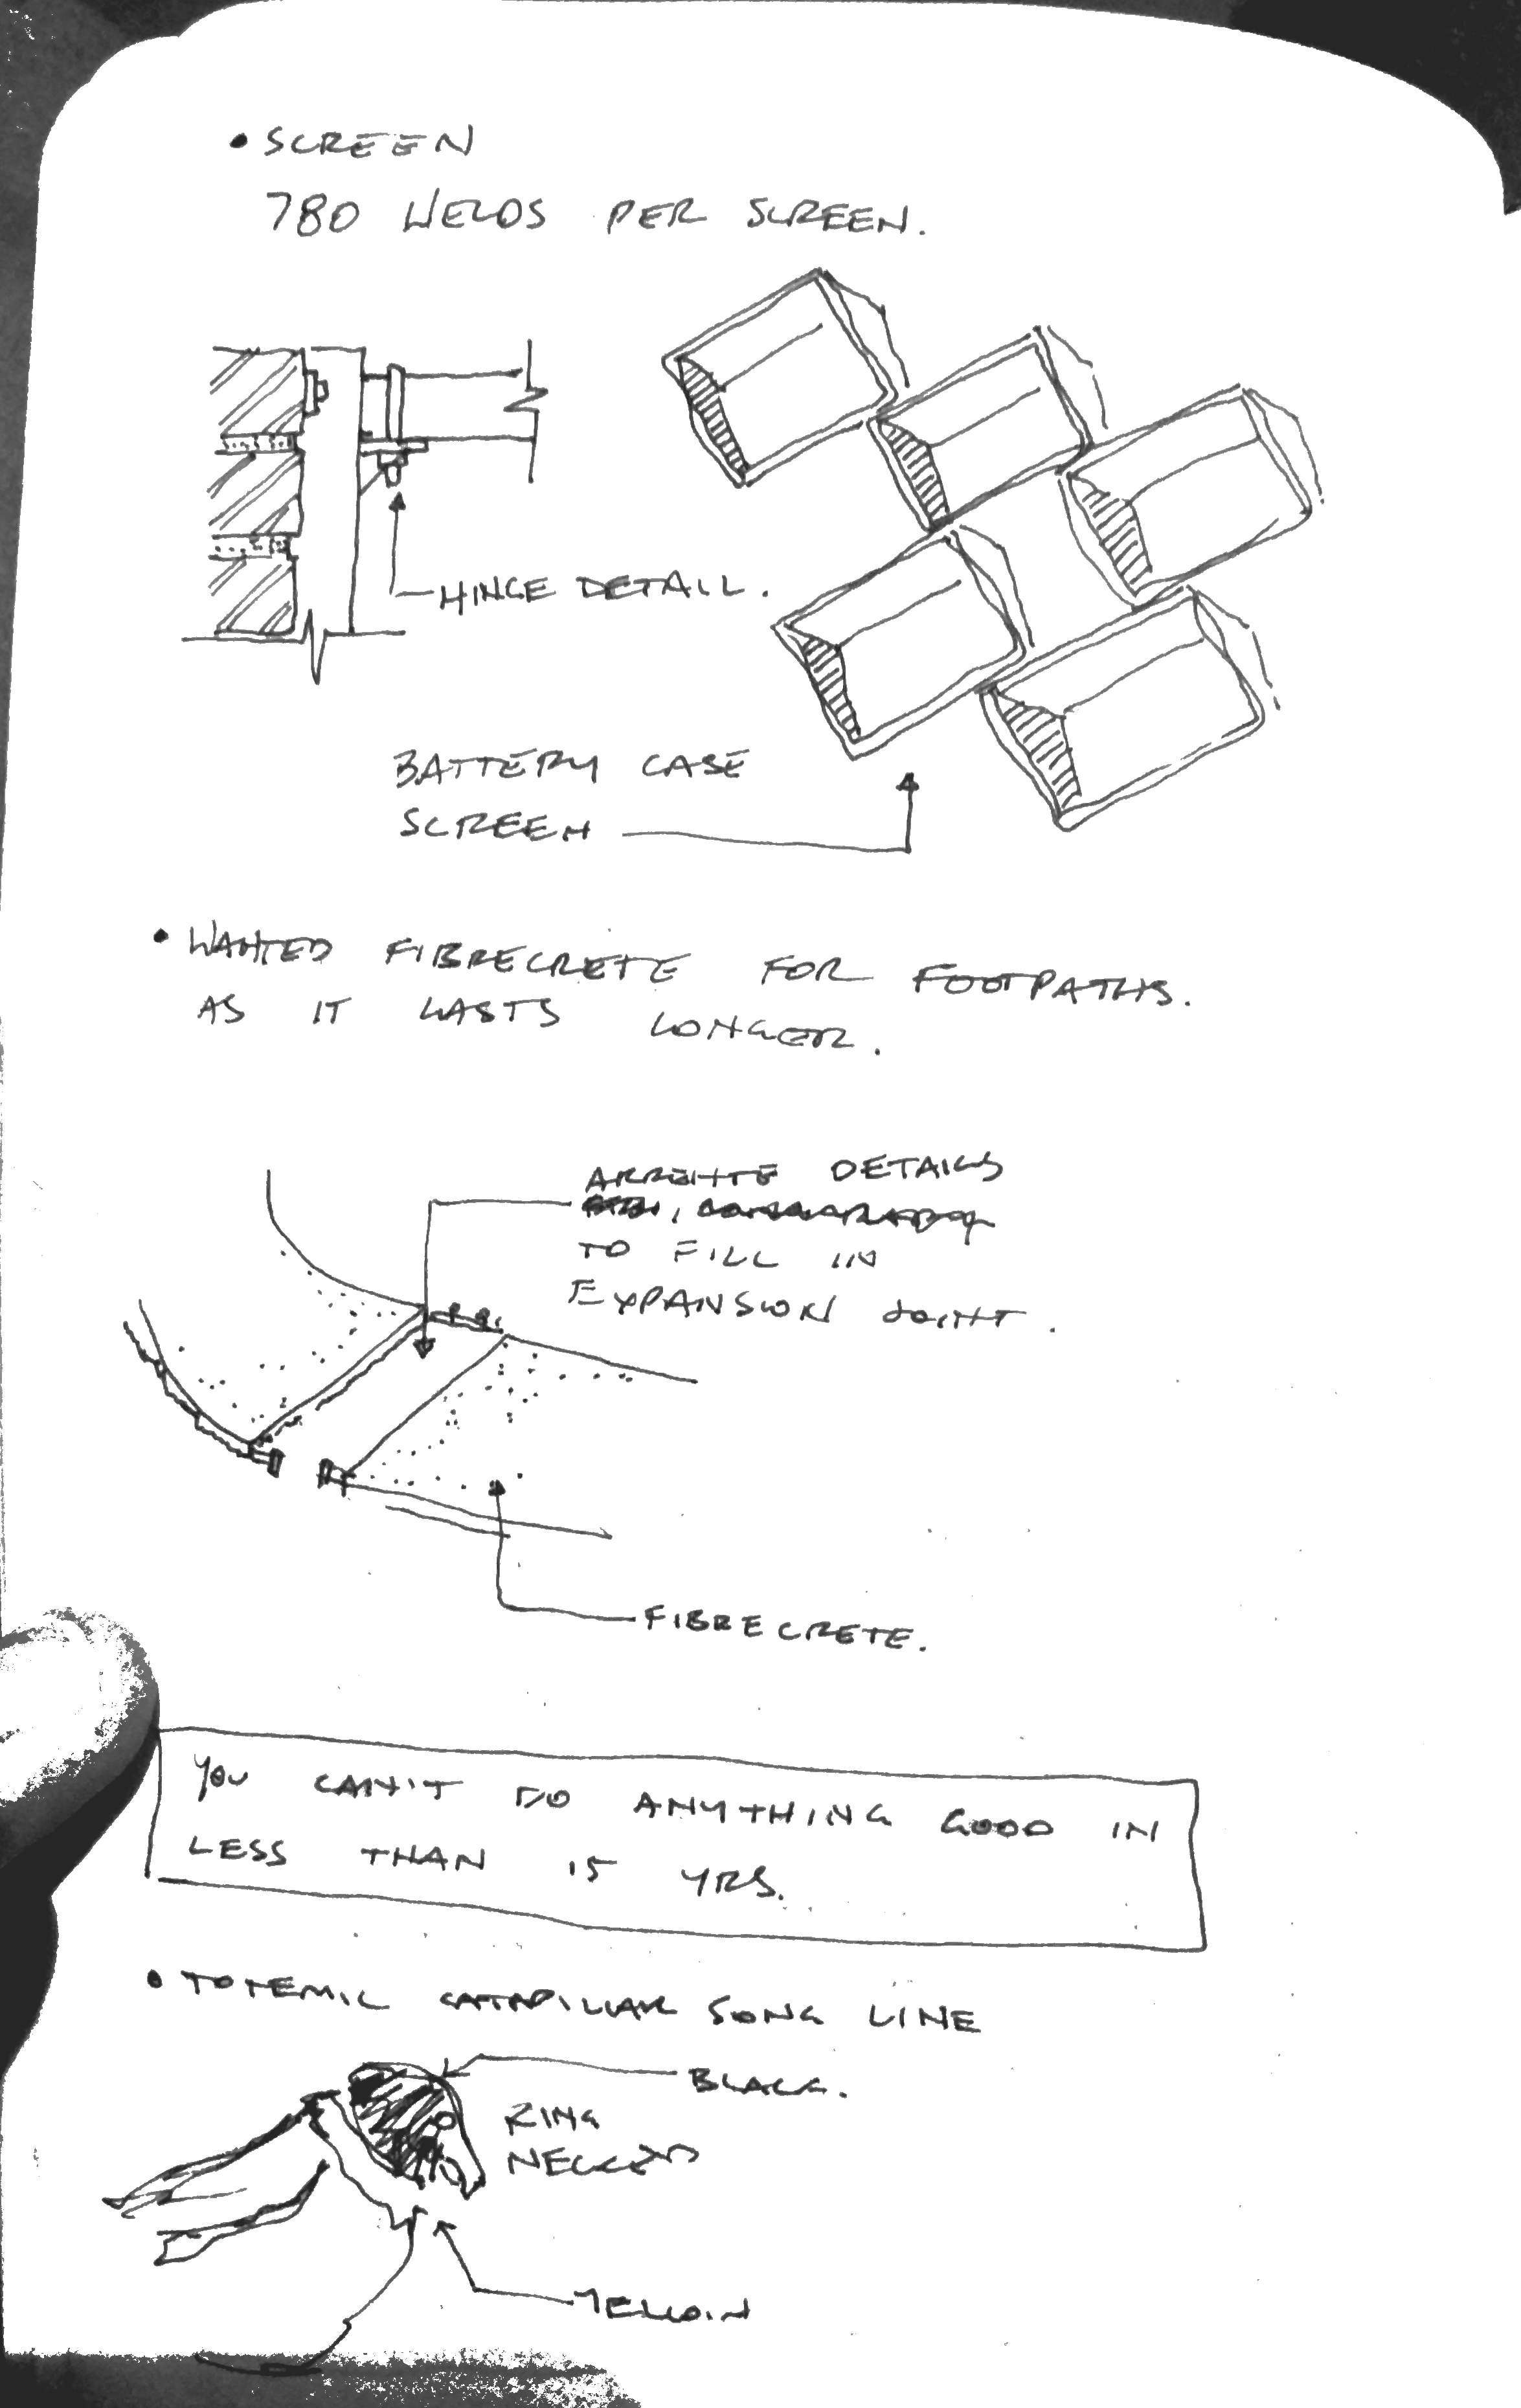 • SCREEN
780 WELDS PER SCREEN.
HINGE DETAIL.
BATTERY CASE
SCREEN
• WANTED FIBRECRETE FOR FOOTPATHS.
AS IT LASTS LONGER.
DETAILS
TO FILL IN
EXPANSION JOINT.
FIBRECRETE.
YOU CAN'T DO ANYTHING GOOD IN
LESS THAN 15 YRS.
• TOTEMIC CATAPILLAR SONG LINE
BLACK.
RING
NECKED
YELLOW